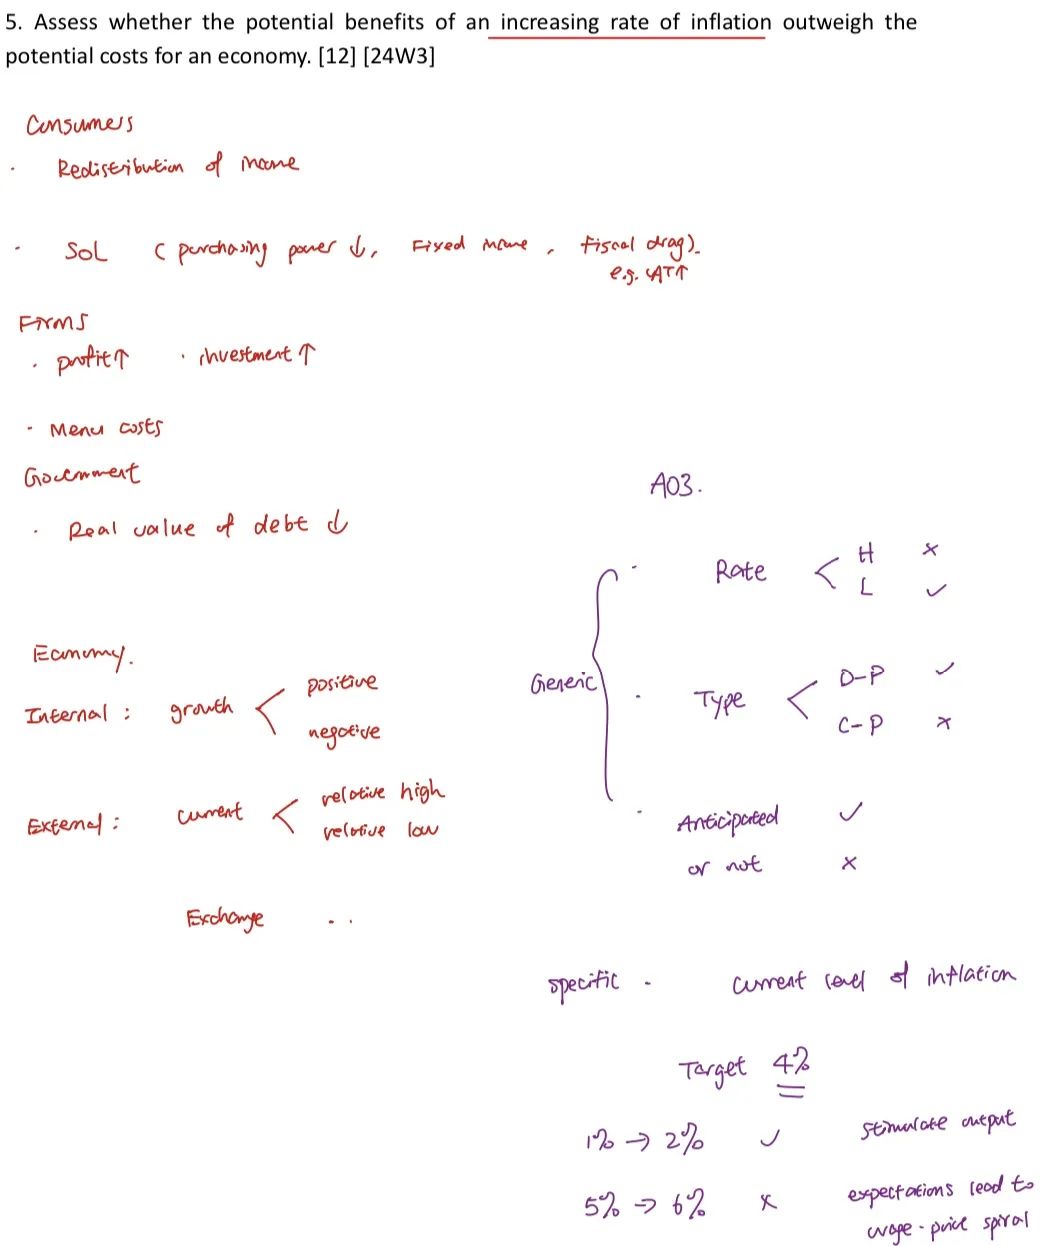 5. Assess whether the potential benefits of an increasing rate of inflation outweigh the
potential costs for an economy. [12] [24W3]
Consumers
· Redistribution of income
· SoL ( purchasing power ↓, Fixed income, fiscal drag).
e.g. AT↑
Firms
· profit↑ · investment ↑
· Menu costs
Government
· Real value of debt ↓
Economy.
Internal : growth < positive
negative
External : current < relative high
relative low
Exchange . .
AO3.
Generic
· Rate < H ×
L ✓
· Type < D-P ✓
C-P ×
· Anticipated ✓
or not ×
specific · current level of inflation
Target 4%
1% → 2% ✓ stimulate output
5% → 6% × expectations lead to
wage-price spiral